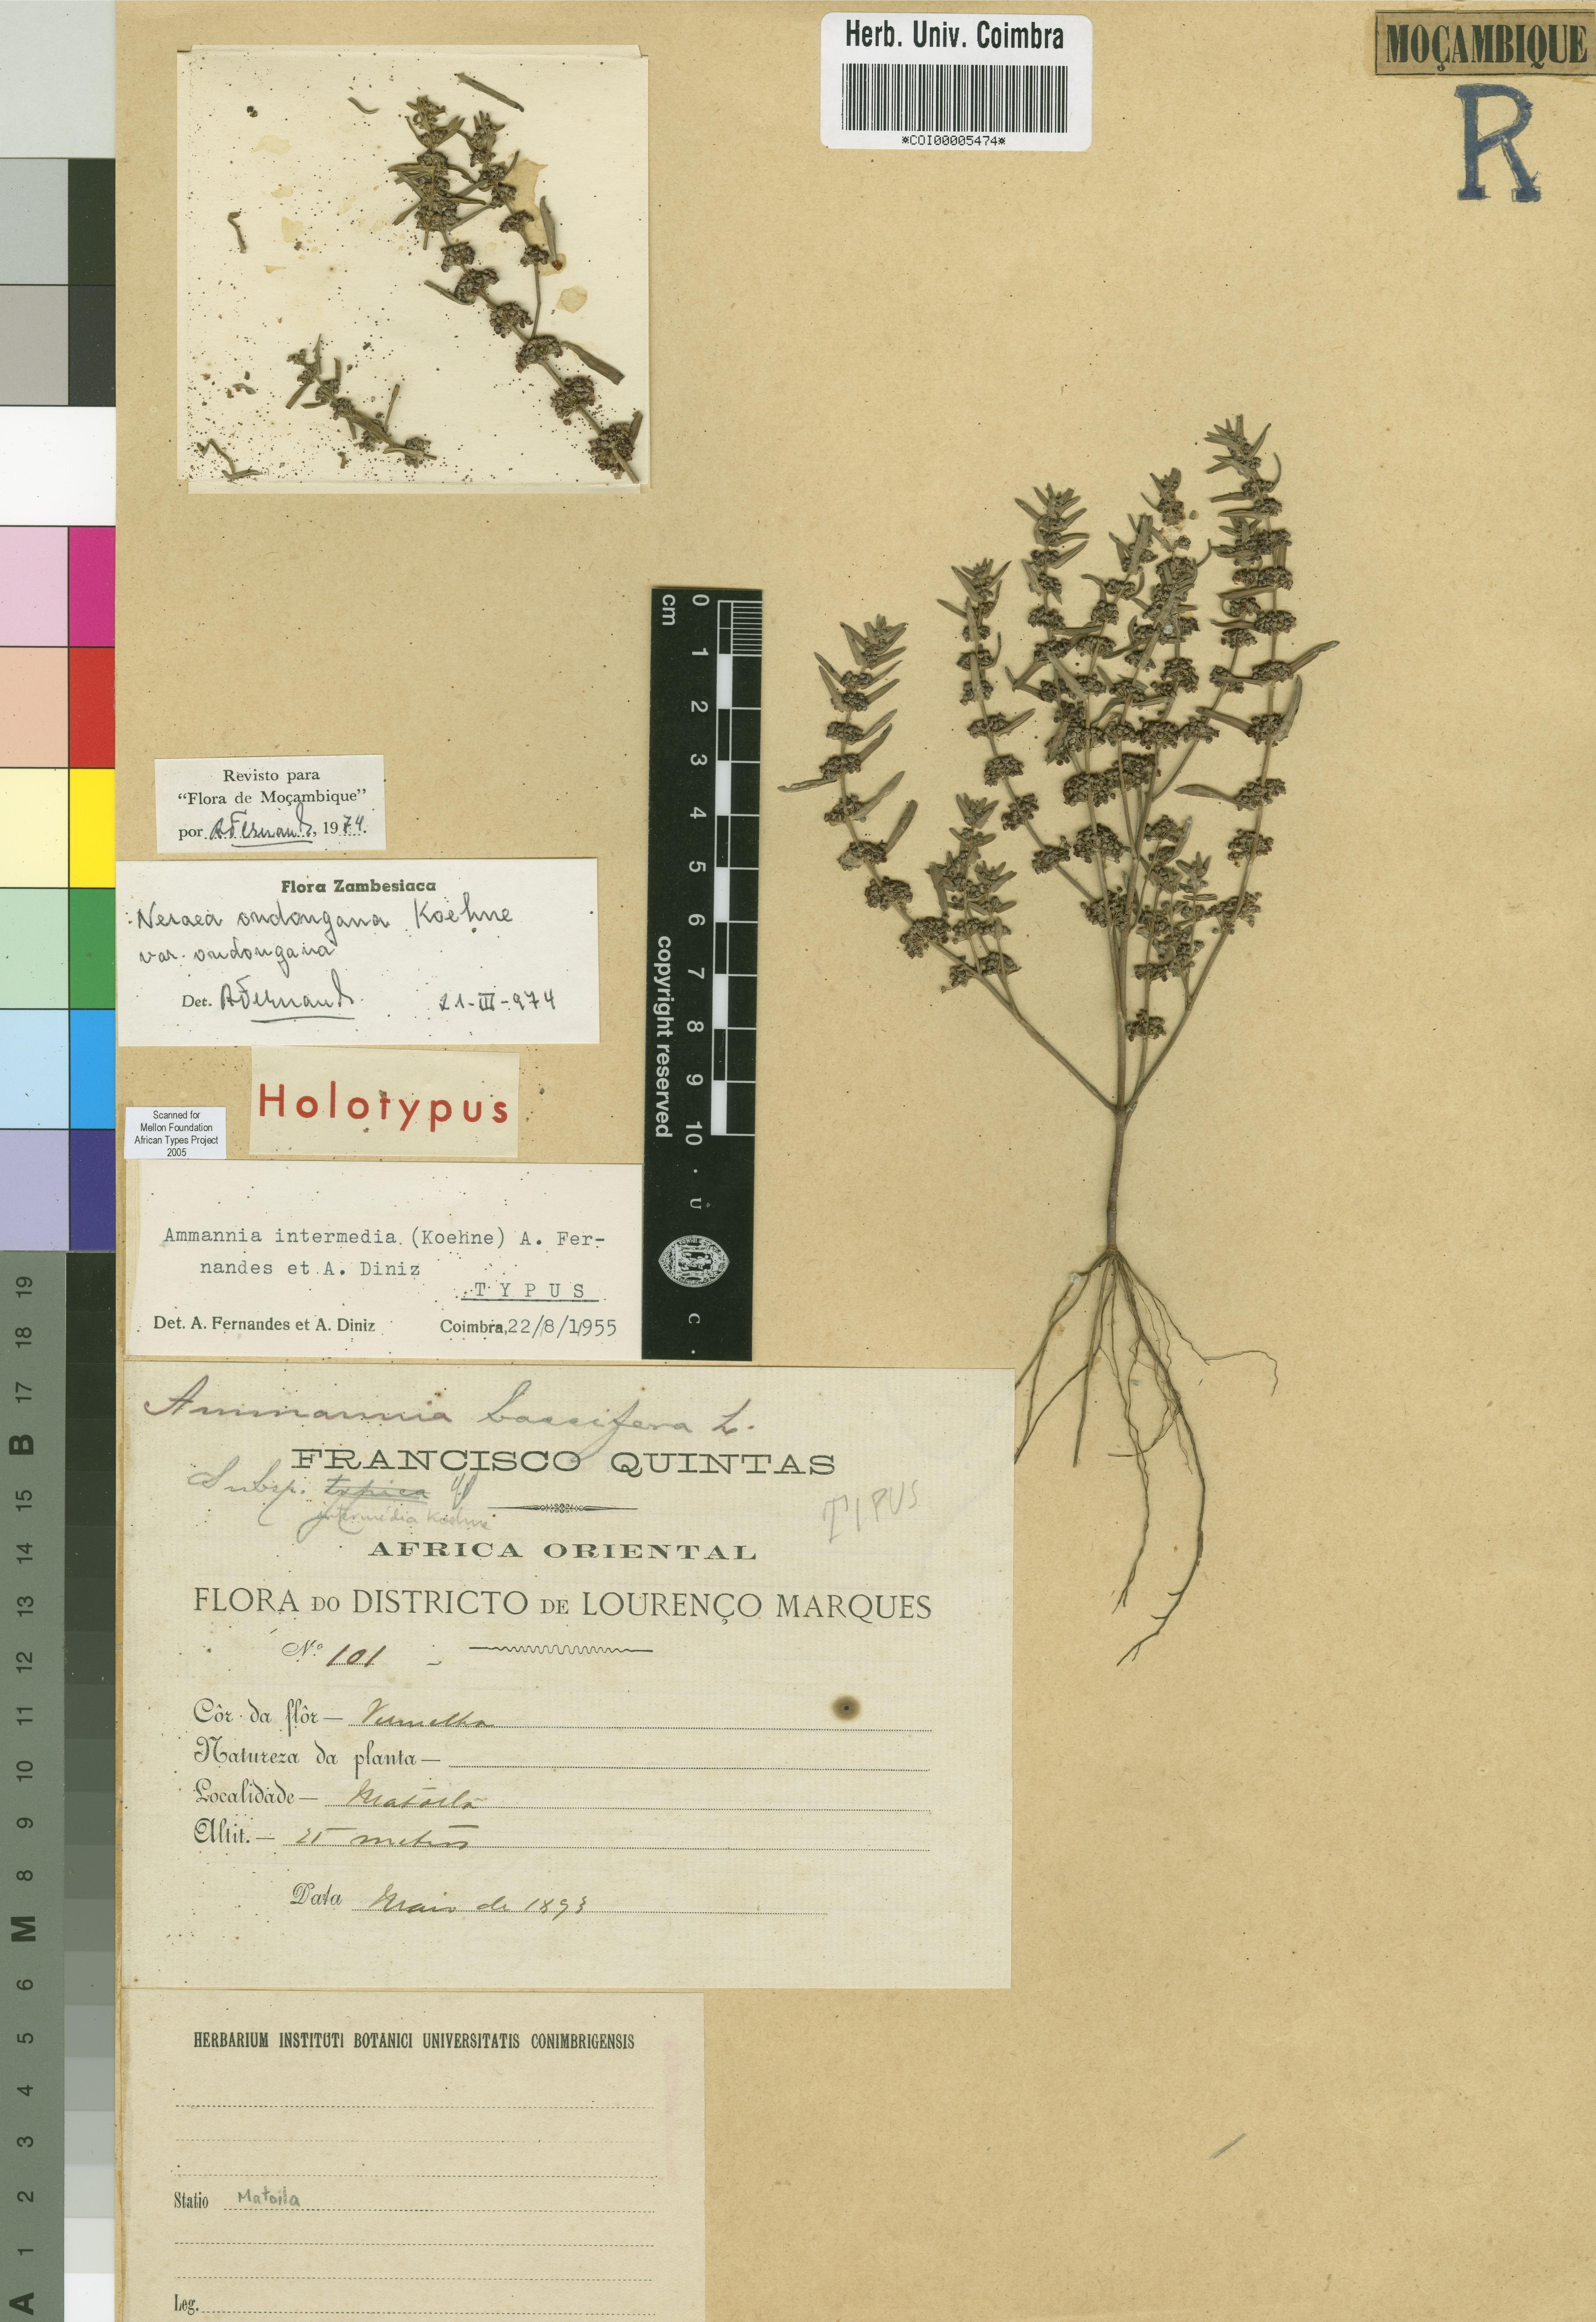 Herb. Univ. Coimbra
*COI00005474*
MOÇAMBIQUE
R
cm
0 1 2 3 4 5 6 7 8 9 10
copyright reserved
U
C
Revisto para
“Flora de Moçambique”
por AFernands, 1974.
Flora Zambesiaca
Nesaea ondongana Koehne
var. ondongana
Det. AFernands. 21-III-974
Holotypus
Scanned for
Mellon Foundation
African Types Project
2005
Ammannia intermedia (Koehne) A. Fer-
nandes et A. Diniz
TYPUS
Det. A. Fernandes et A. Diniz Coimbra, 22/8/1955
Ammannia baccifera L.
FRANCISCO QUINTAS
Subsp. typica
intermédia Koehne
TYPUS
AFRICA ORIENTAL
FLORA DO DISTRICTO DE LOURENÇO MARQUES
Nº 101
Côr da flôr — Vermelha
Natureza da planta —
Localidade — Matoila
Altit. — 25 metros
Data Maio de 1893
HERBARIUM INSTITUTI BOTANICI UNIVERSITATIS CONIMBRIGENSIS
Statio Matoila
Leg.
19
18
17
B
15
14
13
12
11
10
9
8
M
6
5
4
3
2
1
A